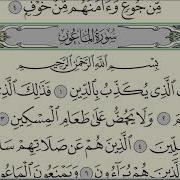 مِّن جُوعٍ وَءَامَنَهُم مِّنْ خَوْفٍ ٤
سُورَةُ الْمَاعُونِ
بِسْمِ اللَّهِ الرَّحْمَٰنِ الرَّحِيمِ
الَّذِي يُكَذِّبُ بِالدِّينِ ١ فَذَٰلِكَ
وَلَا يَحُضُّ عَلَىٰ طَعَامِ الْمِسْكِينِ ٣
الَّذِينَ هُمْ عَن صَلَاتِهِمْ
هُمْ يُرَآءُونَ ٦ وَيَمْنَعُونَ